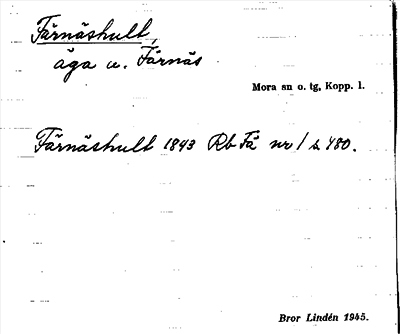 Färnäshult,
äga u. Färnäs
Mora sn o. tg, Kopp. l.
Färnäshult 1843 Rb Fä nr 1 s 480.
Bror Lindén 1945.